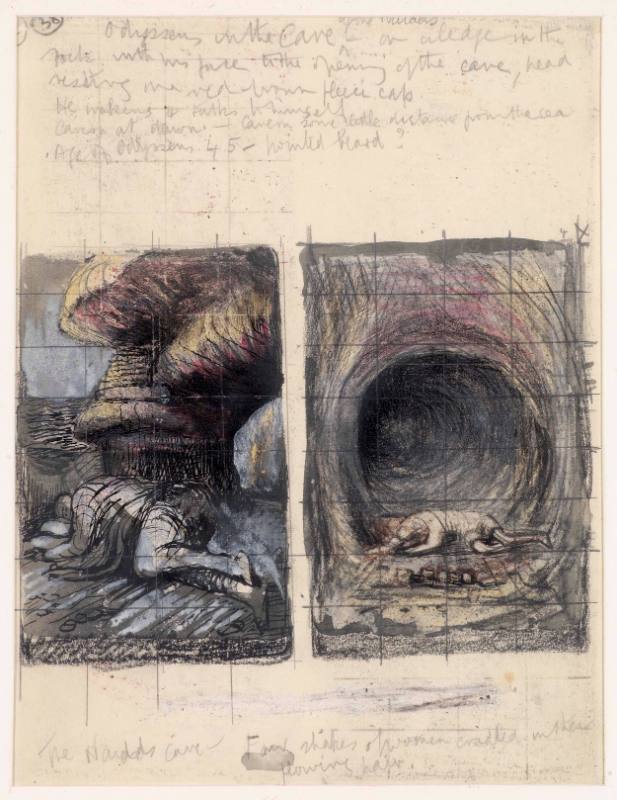 38
Odysseus in the Cave - on a ledge in the
rock with his face to the opening of the cave, head
resting on a red brown fleece cap
He wakens & talks to himself
Cavern at dawn. - Cavern some little distance from the sea
Age of Odysseus 45 - pointed beard?
The Naiads cave - Four shapes of women cradled in their
flowing hair.